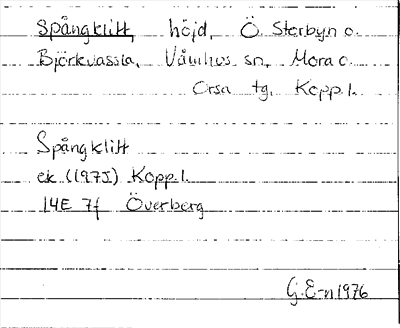 Spångklitt, höjd, Ö. Storbyn o.
Björkvassla, Våmhus sn, Mora o.
Orsa tg, Kopp. l.
Spångklitt
ek (1975) Kopp. l.
14E 7f Överberg
G.E-n 1976